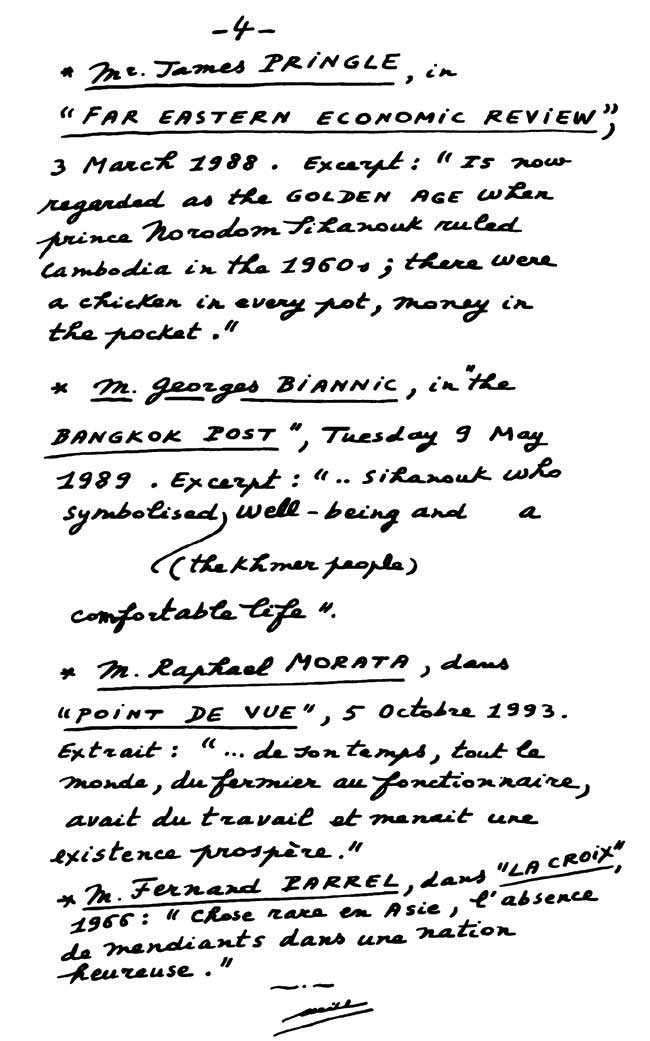 -4-
* Mr. James PRINGLE, in
"FAR EASTERN ECONOMIC REVIEW",
3 March 1988. Excerpt: "Is now
regarded as the GOLDEN AGE when
prince Norodom Sihanouk ruled
Cambodia in the 1960s; there were
a chicken in every pot, money in
the pocket."
* M. Georges BIANNIC, in "the
BANGKOK POST", Tuesday 9 May
1989. Excerpt: ".. Sihanouk who
symbolised, well-being and a
(the Khmer people)
comfortable life".
* M. Raphael MORATA, dans
"POINT DE VUE", 5 Octobre 1993.
Extrait: "... de son temps, tout le
monde, du fermier au fonctionnaire,
avait du travail et menait une
existence prospère."
* M. Fernand PARREL, dans "LA CROIX",
1966: "Chose rare en Asie, l'absence
de mendiants dans une nation
heureuse."